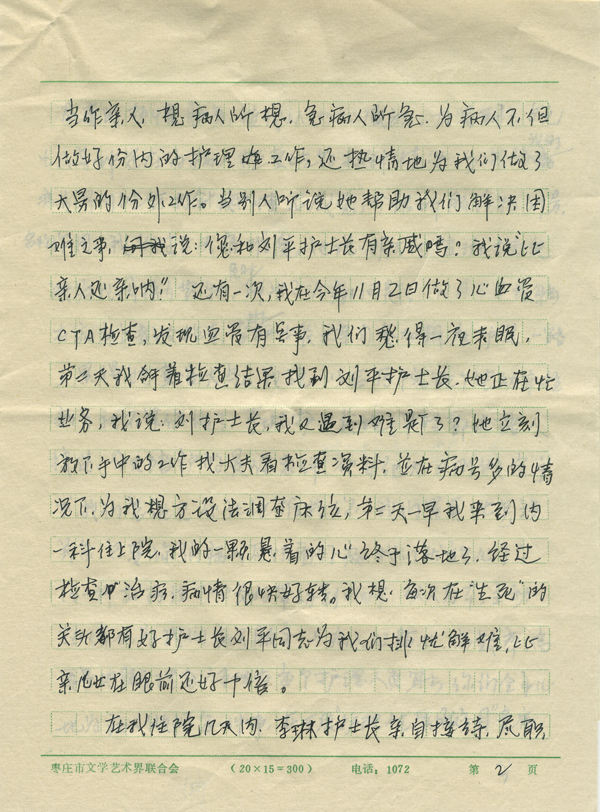 当作亲人，想病人所想，急病人所急，为病人不但
做好份内的护理工作，还热情地为我们做了
大量的份外工作。当别人听说她帮助我们解决困
难之事，问我说：您和刘平护士长有亲戚吗？我说“比
亲人还亲呐！”还有一次，我在今年11月2日做了心血管
CTA检查，发现血管有异事，我们愁得一夜未眠，
第二天我拿着检查结果找到刘平护士长，她正在忙
业务，我说：刘护士长，我又遇到难题了？她立刻
放下手中的工作找大夫看检查资料，并在病号多的情
况下，为我想方设法调整床位，第二天一早我来到内
一科住上院，我的一颗悬着的心终于落地了，经过
检查治疗，病情很快好转。我想，每次在“生死”的
关头都有好护士长刘平同志为我们排忧解难，比
亲儿女在眼前还好十倍。
在我住院几天内，李琳护士长亲自接待，尽职
枣庄市文学艺术界联合会 （20×15=300） 电话：1072 第 2 页